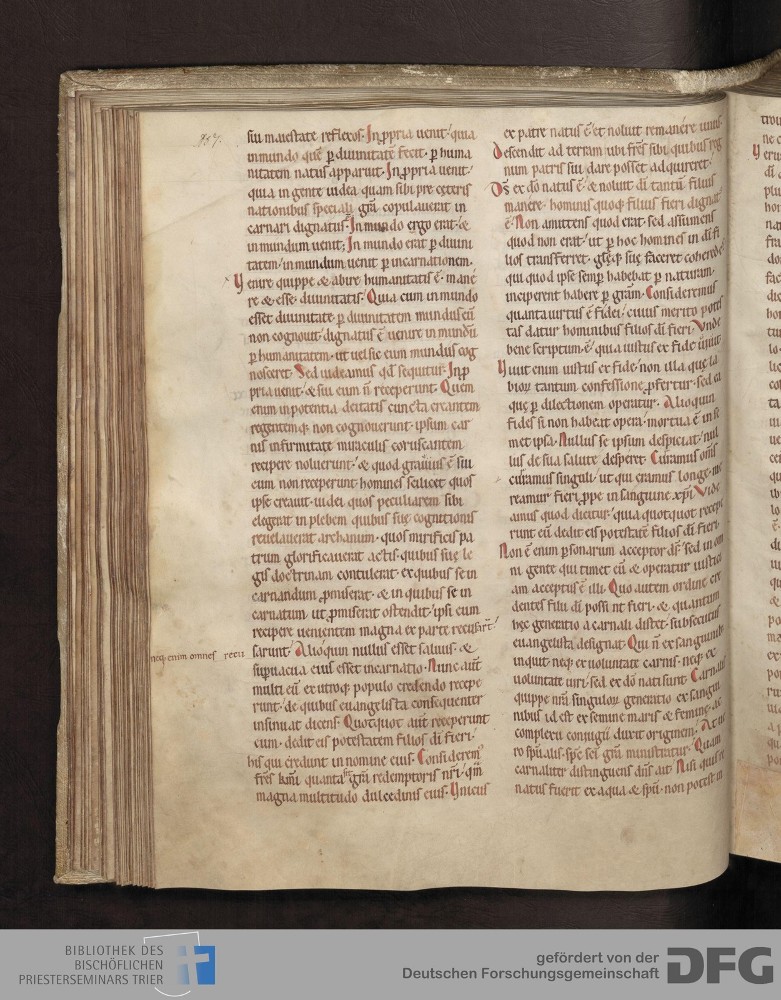 157.
sui maiestate reflexos. In ppria uenit. quia
in mundo quē p diuinitatē fecit. p huma
nitatem natus apparuit. In ppria uenit.
quia in gente iudea quam sibi pre ceteris
nationibus speciali grā copulauerat in
carnari dignatus. In mundo ergo erat. &
in mundum uenit. In mundo erat p diuini
tatem. in mundum uenit p incarnationem.
Venire quippe & abire humanitatis ē. mane
re & esse diuinitatis. Quia cum in mundo
esset diuinitate p diuinitatem mundus eū
non cognouit. dignatus ē uenire in mundū
p humanitatem. ut uel sic eum mundus cog
nosceret. Sed uideamus qd sequitur. In p
pria uenit. & sui eum n̄ receperunt. Quem
enim in potentia deitatis cuncta creantem
regentemq; non cognouerunt. ipsum car
nis infirmitate miraculis coruscantem
recipere noluerunt. & quod grauius ē sui
eum non receperunt. homines scilicet quos
ipse creauit. iudei quos peculiarem sibi
elegerat in plebem quibus suę cognitionis
reuelauerat archanum. quos mirificis pa
trum glorificauerat actis. quibus suę le
gis doctrinam contulerat. ex quibus se in
carnandum pmiserat. & in quibus se in
carnatum ut pmiserat ostendit. ipsi eum
recipere uenientem magna ex parte recu
neq; enim omnes recu
sarunt. Alioquin nullus esset saluus. &
supuacua eius esset incarnatio. Nunc aūt
multi eū ex utroq; populo credendo recepe
runt. de quibus euangelista consequenter
insinuat dicens. Quotquot aūt receperunt
eum. dedit eis potestatem filios dī fieri.
his qui credunt in nomine eius. Considerem
frēs kmi quanta grā redemptoris nrī. qm
magna multitudo dulcedinis eius. Vnicus
ex patre natus ē. et noluit remanere unus.
Descendit ad terram ubi frēs sibi quibus reg
num patris sui dare posset adquireret.
Ds ex dō natus ē. & noluit dī tantū filius
manere. hominis quoq; filius fieri dignat
ē. Non amittens quod erat. sed assumens
quod non erat. ut p hoc homines in dī fi
lios transferret. glęq; suę faceret coherede
qui quod ipse semp habebat p naturam.
inciperent habere p grām. Consideremus
quanta uirtus ē fidei. cuius merito potes
tas datur hominibus filios dī fieri. Vnde
bene scriptum ē. quia iustus ex fide uiuit
Viuit enim iustus ex fide. non illa quę la
biorū tantum confessione pfertur. sed ea
quę p dilectionem operatur. Alioquin
fides si non habeat opera. mortua ē in se
met ipsa. Nullus se ipsum despiciat. nul
lus de sua salute desperet. Curramus om̄s
curramus singuli. ut qui eramus longe. me
reamur fieri ppe in sanguine xpī. Vide
amus quod dicitur. quia quotquot recepe
runt eū dedit eis potestatē filios dī fieri.
Non ē enim psonarum acceptor ds. sed in om
ni gente qui timet eū & operatur iustici
am acceptus ē illi. Quo autem ordine cre
dentes filii dī possint fieri. & quantum
hęc generatio a carnali distet. subsecutus
euangelista designat. Qui n̄ ex sanguinib;
inquit. neq; ex uoluntate carnis. neq; ex
uoluntate uiri. sed ex dō nati sunt. Carnalis
quippe nrā singulorū generatio ex sangui
nibus id est ex semine maris & feminę. ac
complexu coniugii duxit originem. At ue
ro spūalis. spc sci grā ministratur. Quam
carnaliter distinguens dns ait. Nisi quis re
natus fuerit ex aqua & spū. non potest in
BIBLIOTHEK DES
BISCHÖFLICHEN
PRIESTERSEMINARS TRIER
gefördert von der
Deutschen Forschungsgemeinschaft
DFG